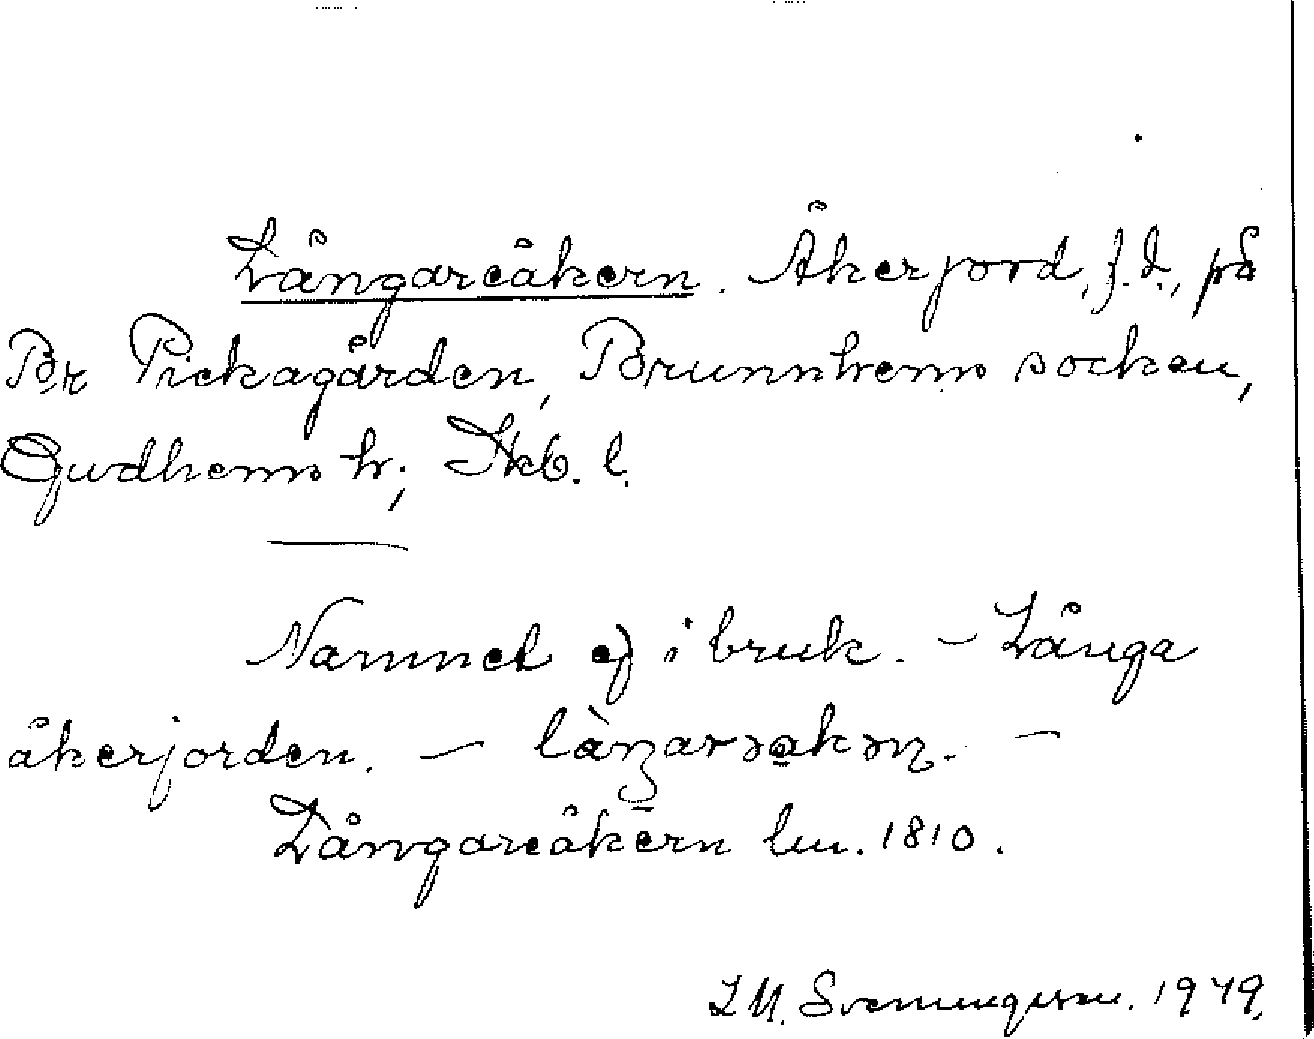 Långareåkern. Åkerjord, f.d., på
Br Pickagården, Brunnhems socken,
Gudhems h; Skb. l.
Namnet ej i bruk. – Långa
åkerjorden. – –
Långareåkern lm. 1810.
L M. Svenungsson. 1949.